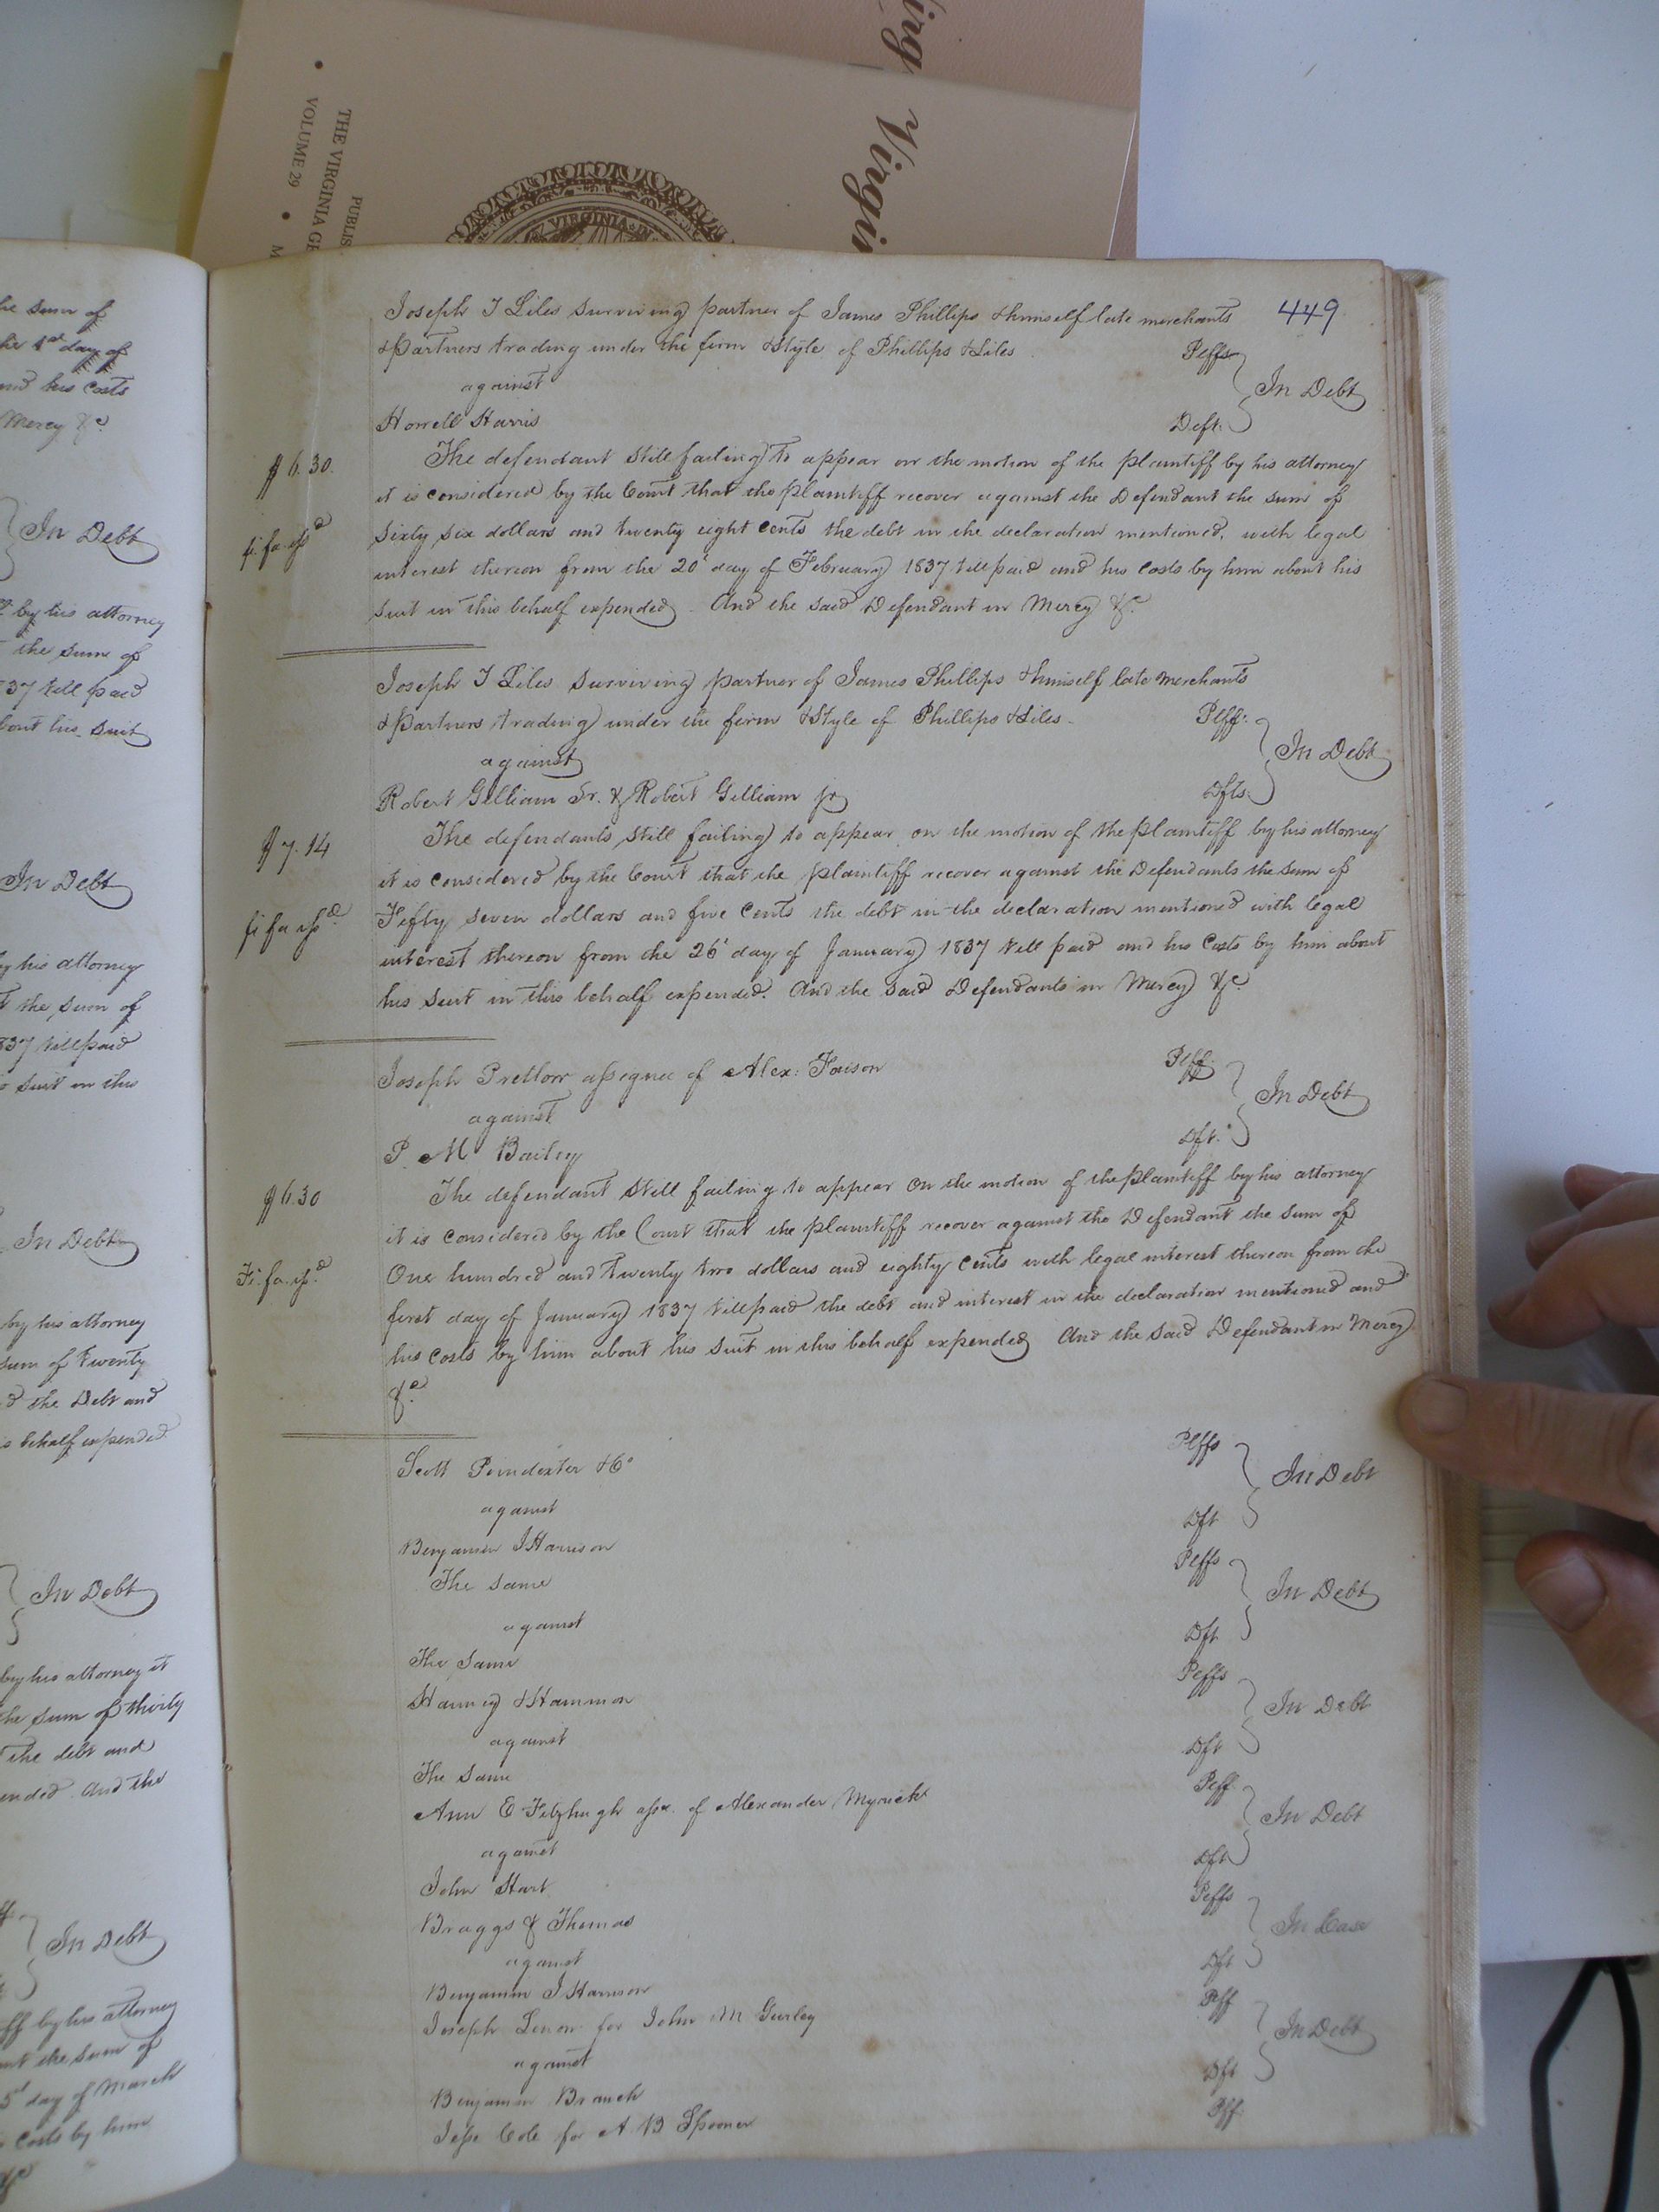 Virgin
ing Virgi
PUBLIS
THE VIRGINIA GE
VOLUME 29 • M
VIRGINIA
he sum of
he 1st day of
and his costs
Mercy &c
In Debt
by his attorney
the sum of
37 till paid
bout his suit
In Debt
by his attorney
t the sum of
837 till paid
suit in this
In Debt
by his attorney
sum of twenty
d the Debt and
s behalf expended
In Debt
by his attorney it
he sum of thirty
the debt and
ended. And the
In Debt
ff by his attorney
nt the sum of
day of March
costs by him
&c
449
Joseph T Liles surviving partner of James Phillips & himself late merchants
& Partners trading under the firm & Style of Phillips & Liles Plffs
against In Debt
Howell Harris Deft.
$6.30. The defendant still failing to appear on the motion of the plaintiff by his attorney
it is considered by the Court that the plaintiff recover against the Defendant the sum of
fi. fa. issd Sixty six dollars and twenty eight cents the debt in the declaration mentioned, with legal
interest thereon from the 20' day of February 1837 till paid and his costs by him about his
suit in this behalf expended. And the said Defendant in Mercy &c.
Joseph T Liles surviving partner of James Phillips & himself late Merchants
& Partners trading under the firm & Style of Phillips & Liles. Plff.
against In Debt
Robert Gilliam Sr. & Robert Gilliam jr Dfts.
$7.14 The defendants still failing to appear on the motion of the plaintiff by his attorney
it is considered by the Court that the plaintiff recover against the Defendants the sum of
fi fa issd. Fifty seven dollars and five cents the debt in the declaration mentioned with legal
interest thereon from the 26' day of January 1837 till paid and his Costs by him about
his suit in this behalf expended. And the said Defendants in Mercy &c.
Joseph Pretlow assignee of Alex: Faison Plff.
against In Debt
P. M. Bailey Dft.
$6.30 The defendant still failing to appear on the motion of the plaintiff by his attorney
it is considered by the Court that the plaintiff recover against the Defendant the sum of
Fi. fa. issd. One hundred and twenty two dollars and eighty cents with legal interest thereon from the
first day of January 1837 till paid the debt and interest in the declaration mentioned and
his costs by him about his suit in this behalf expended And the said Defendant in Mercy
&c.
Scott Poindexter & Co Plffs
against In Debt
Benjamin J Harrison Dft
The same Plffs
against In Debt
The same Dft
Harvey & Hammon Plffs
against In Debt
The same Dft
Ann E Fitzhugh asse. of Alexander Myrick Plff
against In Debt
John Hart Dft
Braggs & Thomas Plffs
against In Case
Benjamin J Harrison Dft
Joseph Lenow for John M Gurley Plff
against In Debt
Benjamin Branch Dft
Jesse Cole for A B Spooner Plff.